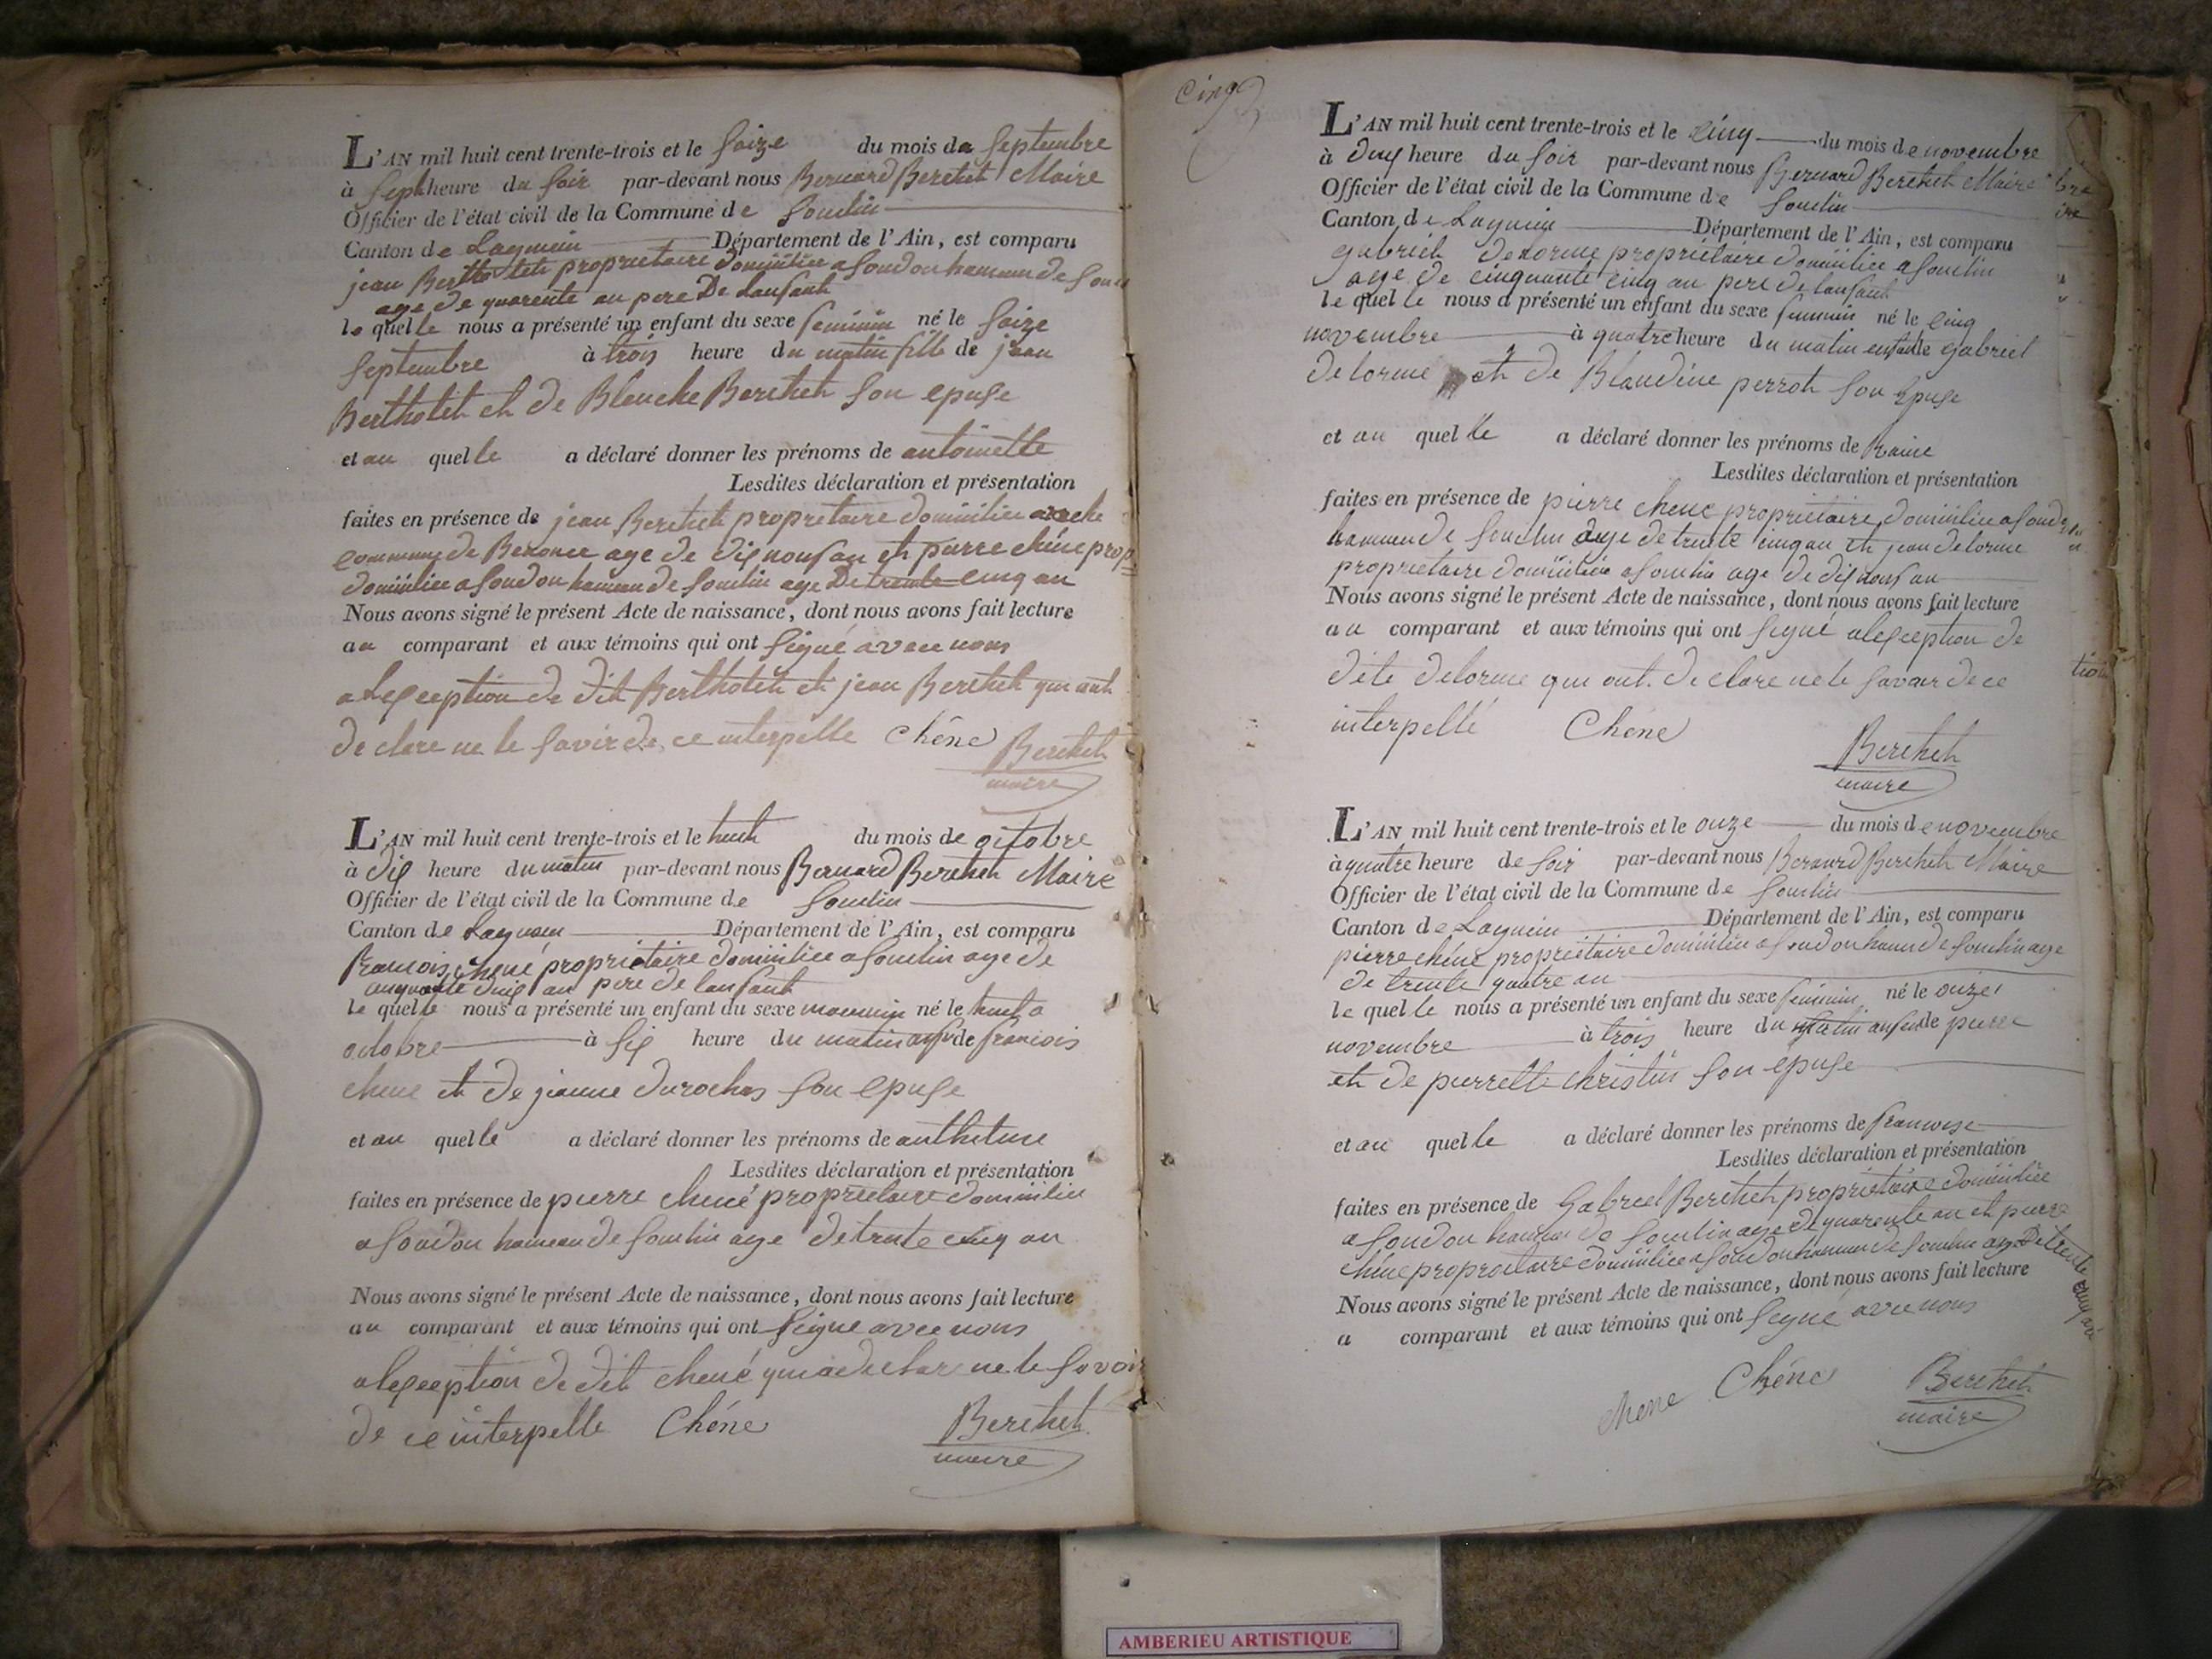 L'AN mil huit cent trente-trois et le saize du mois de Septembre
à sept heure du soir par-devant nous Bernard Berthet Maire
Officier de l'état civil de la Commune de Souclin
Canton de Lagnieu Département de l'Ain, est comparu
jean Berthotet propriétaire domicilice a soudon hameau de
age de quarente an pere De lanfant
le quelle nous a présenté un enfant du sexe feminin né le saize
septembre à trois heure du matin fille de jean
Berthotet et de Blenche Berthet son epuse
et au quelle a déclaré donner les prénoms de antoinette
Lesdites déclaration et présentation
faites en présence de jean Berthet propretaire domicilice
commune de Benonce age de dix nouf an et pierre chéne prop
domicilice a soudon hameau de souclin age De trente cinq an
Nous avons signé le présent Acte de naissance, dont nous avons fait lecture
au comparant et aux témoins qui ont signé avec nous
a lexception de dit Berthotet et jean Berthet qui ont
declare ne le savoir de ce interpelle Chéne Berthet
maire
L'AN mil huit cent trente-trois et le huit du mois de octobre
à dix heure du matin par-devant nous Bernard Berthet Maire
Officier de l'état civil de la Commune de Souclin
Canton de Lagnieu Département de l'Ain, est comparu
francois chené propriétaire domicilice a souclin age de
an pere de lanfant
le quelle nous a présenté un enfant du sexe né le huit
octobre à six heure du matin de francois
chene et de jeanne durochas son epuse
et au quelle a déclaré donner les prénoms de
Lesdites déclaration et présentation
faites en présence de pierre chené propriétaire domicilice
a soudon hameau de souclin age de trente cinq an
Nous avons signé le présent Acte de naissance, dont nous avons fait lecture
au comparant et aux témoins qui ont signe avec nous
a lexception de dit chené qui a declare ne le savoir
de ce interpelle Chéne Berthet
maire
cinq
L'AN mil huit cent trente-trois et le cinq du mois de novembre
à heure du soir par-devant nous Bernard Berthet Maire
Officier de l'état civil de la Commune de Souclin
Canton de Lagnieu Département de l'Ain, est comparu
gabriel delorme propriétaire domicilice a souclin
age de cinquante cinq an pere de lanfant
le quel le nous a présenté un enfant du sexe feminin né le cinq
novembre à quatre heure du matin enfant de gabriel
delorme et de Blandine perrot son epuse
et au quel le a déclaré donner les prénoms de
Lesdites déclaration et présentation
faites en présence de pierre chene propriétaire domicilice a soudon
hameau de souclin age de trente cinq an et jean delorme
propriétaire domicilice a souclin age de dix nouf an
Nous avons signé le présent Acte de naissance, dont nous avons fait lecture
au comparant et aux témoins qui ont signé a lexception de
dite delorme qui ont declare ne le savoir de ce
interpellé Chéne Berthet
maire
L'AN mil huit cent trente-trois et le onze du mois de novembre
à quatre heure de soir par-devant nous Bernard Berthet Maire
Officier de l'état civil de la Commune de Souclin
Canton de Lagnieu Département de l'Ain, est comparu
pierre chéne propriétaire domicilice a soudon hameau de souclin age
de trente quatre an
le quel le nous a présenté un enfant du sexe feminin né le onze
novembre à trois heure du matin de pierre
et de pierrette christin son epuse
et au quel le a déclaré donner les prénoms de francoise
Lesdites déclaration et présentation
faites en présence de Gabriel Berthet propriétaire domicilice
a soudon hameau de souclin age de quarente an et pierre
chéne propriétaire domicilice a soudon hameau de souclin age De trente cinq an
Nous avons signé le présent Acte de naissance, dont nous avons fait lecture
a comparant et aux témoins qui ont signé avec nous
chene Chéne Berthet
maire
AMBERIEU ARTISTIQUE